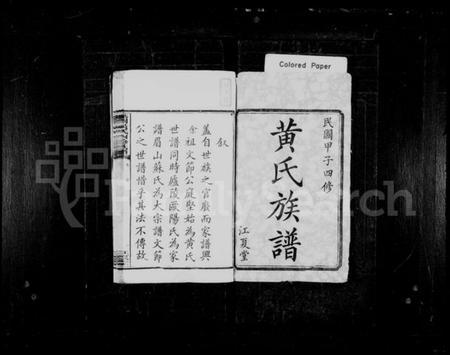 Colored Paper
民國甲子四修
黃氏族譜
江夏堂
敘
蓋自世族之官廢而家譜興
余祖文節公庭堅始為黃氏
世譜同時廬陵歐陽氏為家
譜眉山蘇氏為大宗譜文節
公之世譜惜乎其法不傳故